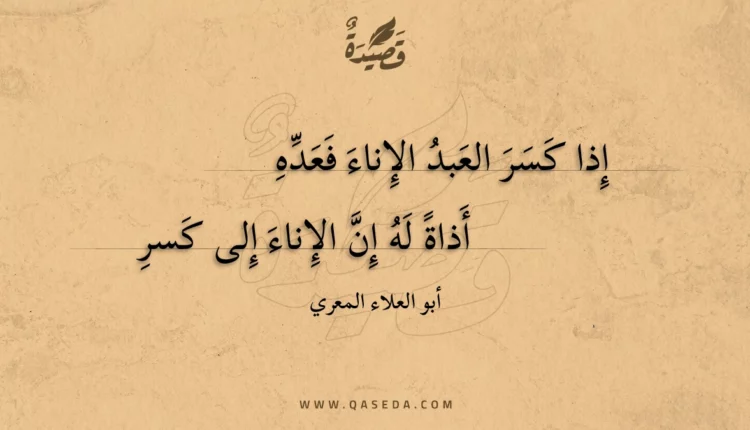 قَصِيدَةٌ
إِذا كَسَرَ العَبدُ الإِناءَ فَعَدِّهِ
أَذاةً لَهُ إِنَّ الإِناءَ إِلى كَسرِ
أبو العلاء المعري
WWW.QASEDA.COM